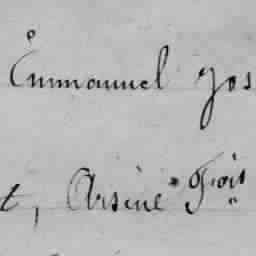 Emmanuel Jos
t, Arsène Fois